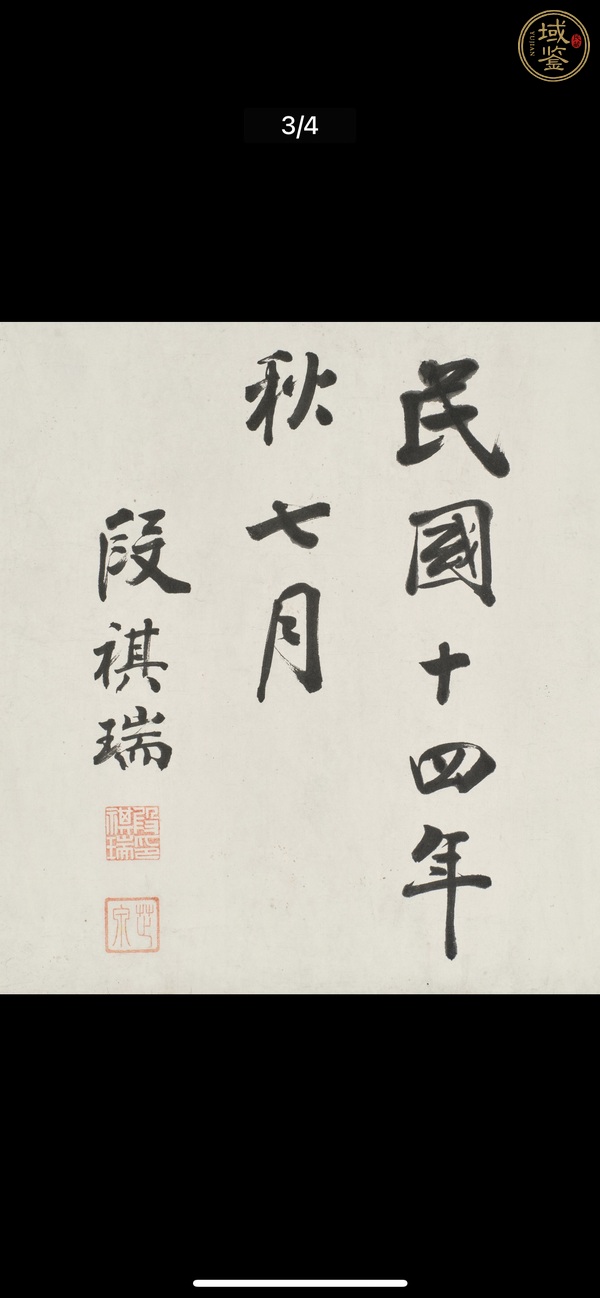 域鉴
YUJIAN
3/4
民國十四年
秋七月
段祺瑞
段祺瑞印
芝泉